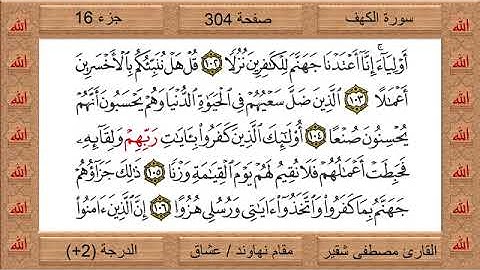 سورة الكهف صفحة 304 جزء 16
أَوْلِيَآءَ ۚ إِنَّآ أَعْتَدْنَا جَهَنَّمَ لِلْكَٰفِرِينَ نُزُلًا ١٠٢ قُلْ هَلْ نُنَبِّئُكُم بِٱلْأَخْسَرِينَ
أَعْمَٰلًا ١٠٣ ٱلَّذِينَ ضَلَّ سَعْيُهُمْ فِى ٱلْحَيَوٰةِ ٱلدُّنْيَا وَهُمْ يَحْسَبُونَ أَنَّهُمْ
يُحْسِنُونَ صُنْعًا ١٠٤ أُو۟لَٰٓئِكَ ٱلَّذِينَ كَفَرُوا۟ بِـَٔايَٰتِ رَبِّهِمْ وَلِقَآئِهِۦ
فَحَبِطَتْ أَعْمَٰلُهُمْ فَلَا نُقِيمُ لَهُمْ يَوْمَ ٱلْقِيَٰمَةِ وَزْنًا ١٠٥ ذَٰلِكَ جَزَآؤُهُمْ
جَهَنَّمُ بِمَا كَفَرُوا۟ وَٱتَّخَذُوٓا۟ ءَايَٰتِى وَرُسُلِى هُزُوًا ١٠٦ إِنَّ ٱلَّذِينَ ءَامَنُوا۟
القارئ مصطفى شقير مقام نهاوند / عشاق الدرجة (2+)
الله
الله
الله
الله
الله
الله
الله
الله
الله
الله
الله
الله